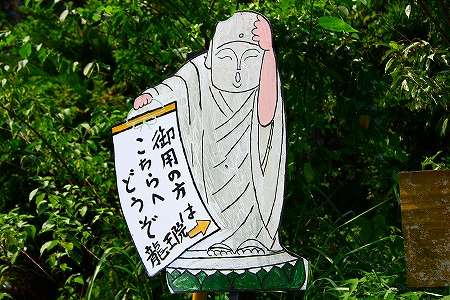 御用の方は
こちらへ
どうぞ
龍王院